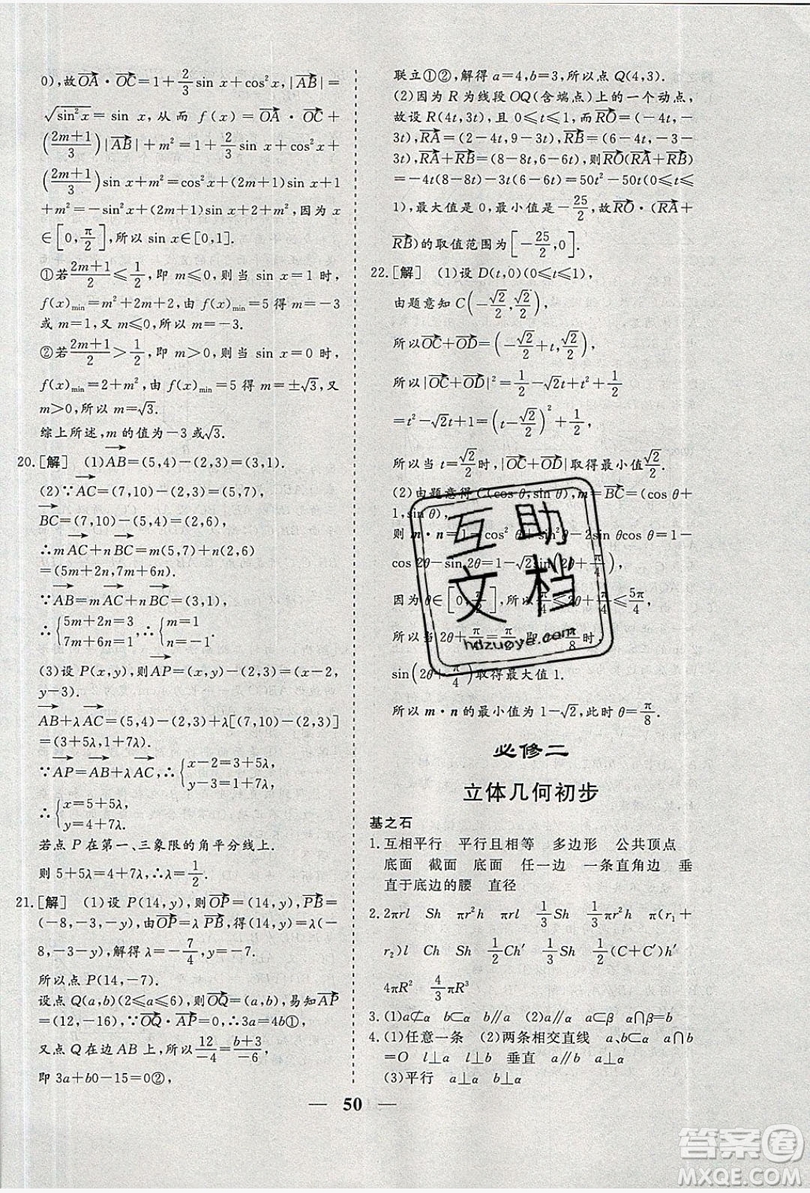 0),故OA·OC=1+2/3 sin x+cos²x,|AB|=
√sin²x=sin x,从而 f(x)=OA·OC-
(2m+1/3)|AB|+m²=1+2/3 sin x+cos²x-
(2m+1/3)sin x+m²=cos²x-(2m+1)sin x+1
+m²=-sin²x-(2m+1)sin x+2+m²,因为 x
∈[0,π/2],所以 sin x∈[0,1].
①若-2m+1/2≤1/2,即 m≥
f(x)min=
或 m=1,所以 m=-3.
②若
f(x)min=f(x)min=5 得 m=±√3,又
m>0,所以 m=√3.
综上所述,m 的值为-3 或√3.
20.[解] (1)AB=(5,4)-(2,3)=(3,1).
(2)∵AC=(7,10)-(2,3)=(5,7),
BC=(7,10)-(5,4)=(2,6),
∴mAC+nBC=m(5,7)+n(2,6)
=(5m+2n,7m+6n).
∵AB=mAC+nBC=(3,1),
∴{5m+2n=3 7m+6n=1 ∴{m=1 n=-1
(3)设 P(x,y),则AP=(x,y)-(2,3)=(x-2,
y-3).
AB+λAC=(5,4)-(2,3)+λ[(7,10)-(2,3)]
=(3+5λ,1+7λ).
∵AP=AB+λAC,∴{x-2=3+5λ y-3=1+7λ
∴{x=5+5λ y=4+7λ.
若点 P 在第一、三象限的角平分线上.
则 5+5λ=4+7λ,∴λ=1/2.
21.[解] (1)设 P(14,y),则OP=(14,y),PB=
(-8,-3-y),由OP=λPB,得(14,y)=λ(-
8,-3-y),解得 λ=-7/4,y=-7,
所以点 P(14,-7).
设点 Q(a,b)(2≤a≤6),则OQ=(a,b),易知AP=
(12,-16),∵OQ·AP=0⇒3a=4b①,
又点 Q 在边 AB 上,所以12/-4=b+3/a-6,
即 3a+b-15=0②,
联立①②,解得 a=4,b=3,所以点 Q(4,3).
(2)因为 R 为线段 OQ(含端点)上的一个动点,
故设 R(4t,3t),且 0≤t≤1,则RO=(-4t,-
3t),RA=(2-4t,9-3t),RB=(6-4t,-3-
3t),RA+RB=(8-8t,6-6t),则RO·(RA+RB)
=-4t(8-8t)-3t(6-6t)=50t²-50t(0≤t≤
1),最大值为 0,最小值为-25/2,故RO·(RA+
RB)的取值范围为[-25/2,0].
22.[解] (1)设 D(t,0)(0≤t≤1),
由题意知 C(-√2/2,√2/2),
所以OC+OD=(-√2/2+t,√2/2),
所以|OC+OD|²=(-√2/2+t)²+1/2
=t²-√2t+1=(t-√2/2)²+1/2,
所以当 t=√2/2时,|OC+OD|取得最小值√2/2.
(2)由题意得 C(cos θ,sin θ),m=BC=(cos θ
+1,sin θ),
则 m·n=1-cos²θ+sin²θ-2sin θcos θ=1-
cos 2θ-sin 2θ=1-√2sin(2θ+π/4).
因为 θ∈[0,π/2],所以π/4≤2θ+π/4≤5π/4,
所以当 2θ+π/4=π/2,即 θ=π/8时,
sin(2θ+π/4)取得最大值 1.
所以 m·n 的最小值为 1-√2,此时 θ=π/8.
必修二
立体几何初步
基之石
1.互相平行 平行且相等 多边形 公共顶点
底面 截面 底面 任一边 一条直角边 垂
直于底边的腰 直径
2.2πrl Sh πr²h 1/3Sh 1/3πr²h 1/3π(r'²+r'r+
r²)l Ch Sh 1/2Ch' 1/3Sh 1/2(C+C')h'
4πR² 4/3πR³
3.(1)a⊄α b⊂α a∥b (2)a⊂β b⊂β a∩b
4.(1)任意一条 (2)两条相交直线 a⊂α a∩b
=O l⊥a l⊥b 垂直 a∥b a⊥α
(3)平行 a⊥α b⊥α
50
互助
文档
hdzuoye.com
答案圈
MXQE.COM